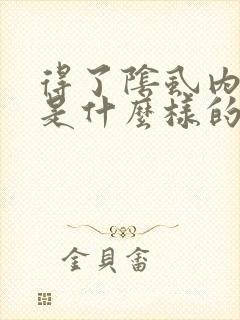 得了陰虱內
是什麼樣的
金貝畬